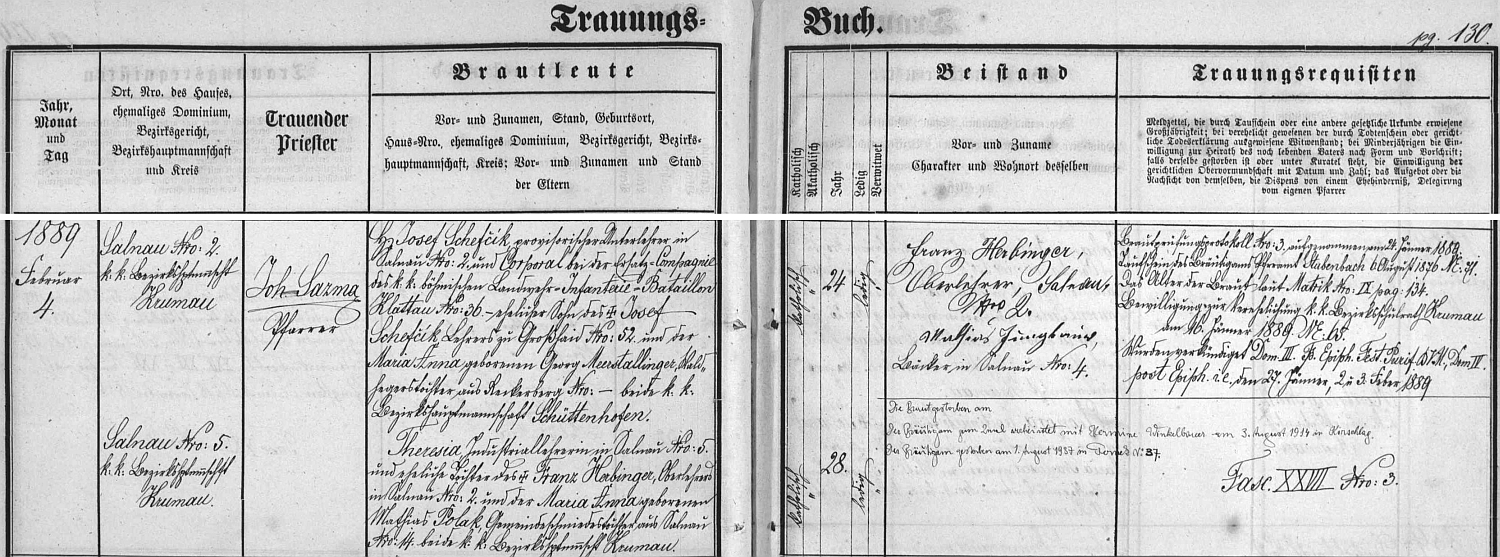 Trauungs=
Buch.
pg. 130.
Jahr,
Monat
und
Tag
Ort, Nro. des Hauses,
ehemaliges Dominium,
Bezirksgericht,
Bezirkshauptmannschaft
und Kreis
Trauender
Priester
Brautleute
Vor- und Zunamen, Stand, Geburtsort,
Haus-Nro., ehemaliges Dominium, Bezirksgericht, Bezirks-
hauptmannschaft, Kreis; Vor- und Zunamen und Stand
der Eltern
Katholisch
Akatholisch
Jahr
Ledig
Verwitwet
Beistand
Vor- und Zuname
Charakter und Wohnort desselben
Trauungsrequisiten
Meldzettel, die durch Taufschein oder eine andere gesetzliche Urkunde erwiesene
Großjährigkeit; bei verehelicht gewesenen der durch Todtenschein oder gericht-
liche Todeserklärung ausgewiesene Witwenstand; bei Minderjährigen die Ein-
willigung zur Heirath des noch lebenden Vaters nach Form und Vorschrift;
falls derselbe gestorben ist oder unter Kuratel steht, die Einwilligung der
gerichtlichen Obervormundschaft mit Datum und Zahl; das Aufgebot oder die
Nachsicht von demselben, die Dispens von einem Ehehinderniß, Delegirung
vom eigenen Pfarrer
1889
Februar
4.
Salnau Nro: 2.
k. k. Bezirkshptmnschft
Krumau
Joh. Sazma
Pfarrer
Josef Schefčik, provisorischer Unterlehrer in
Salnau Nro: 2, und Corporal bei der Ersatz-Compagnie
des k. k. böhmischen Landwehr-Infanterie-Bataillon
Klattau Nro: 36 – ehelicher Sohn des Josef
Schefčik, Lehrers zu Großhaid Nro: 52. und der
Maria Anna geborenen Georg Meerstallinger,
hegerstochter aus Reckerberg Nro: – beide k. k.
Bezirkshauptmannschaft Schüttenhofen.
Katholisch
"
24
ledig
"
Franz Herbinger,
Oberlehrer, Salnau,
Nro 2.
Mathias Jungbauer,
Bäcker in Salnau Nro: 4.
Brautprüfungsprotokoll Nro: 3. aufgenommen am 24. Jänner 1889.
Taufschein des Bräutigams Pfarramt Stubenbach 6. August 1876 N: 71.
Das Alter der Braut laut Matrik Nro: II pag: 134.
Bewilligung zur Verehelichung k. k. Bezirksschulrath Krumau
am 16. Jänner 1889 N: 65.
Wurden verkündiget Dom. III. p. Epiph. Fest. Purif. B.V.M., Dom. IV.
post Epiph. i. e. den 27. Jänner, 2 u 3. Feber 1889
Salnau Nro: 5.
k. k. Bezirkshptmnschft
Krumau.
Theresia Industriallehrerin in Salnau Nro: 5.
und eheliche Tochter des Franz Herbinger, Oberlehrers
in Salnau Nro: 2 und der Maria Anna geborenen
Mathias Polak, Gemeindeschmiedestochter aus Salnau
Nro: 14. beide k. k. Bezirkshptmnschft Krumau.
Katholisch
"
28.
ledig
"
Die Braut gestorben am
Der Bräutigam zum 2mal verheiratet mit Hermine Winkelbauer am 3. August 1914 in Hirschlag.
Der Bräutigam gestorben am 1. August 1937 in N: 37.
Fasc. XXVII Nro: 3.